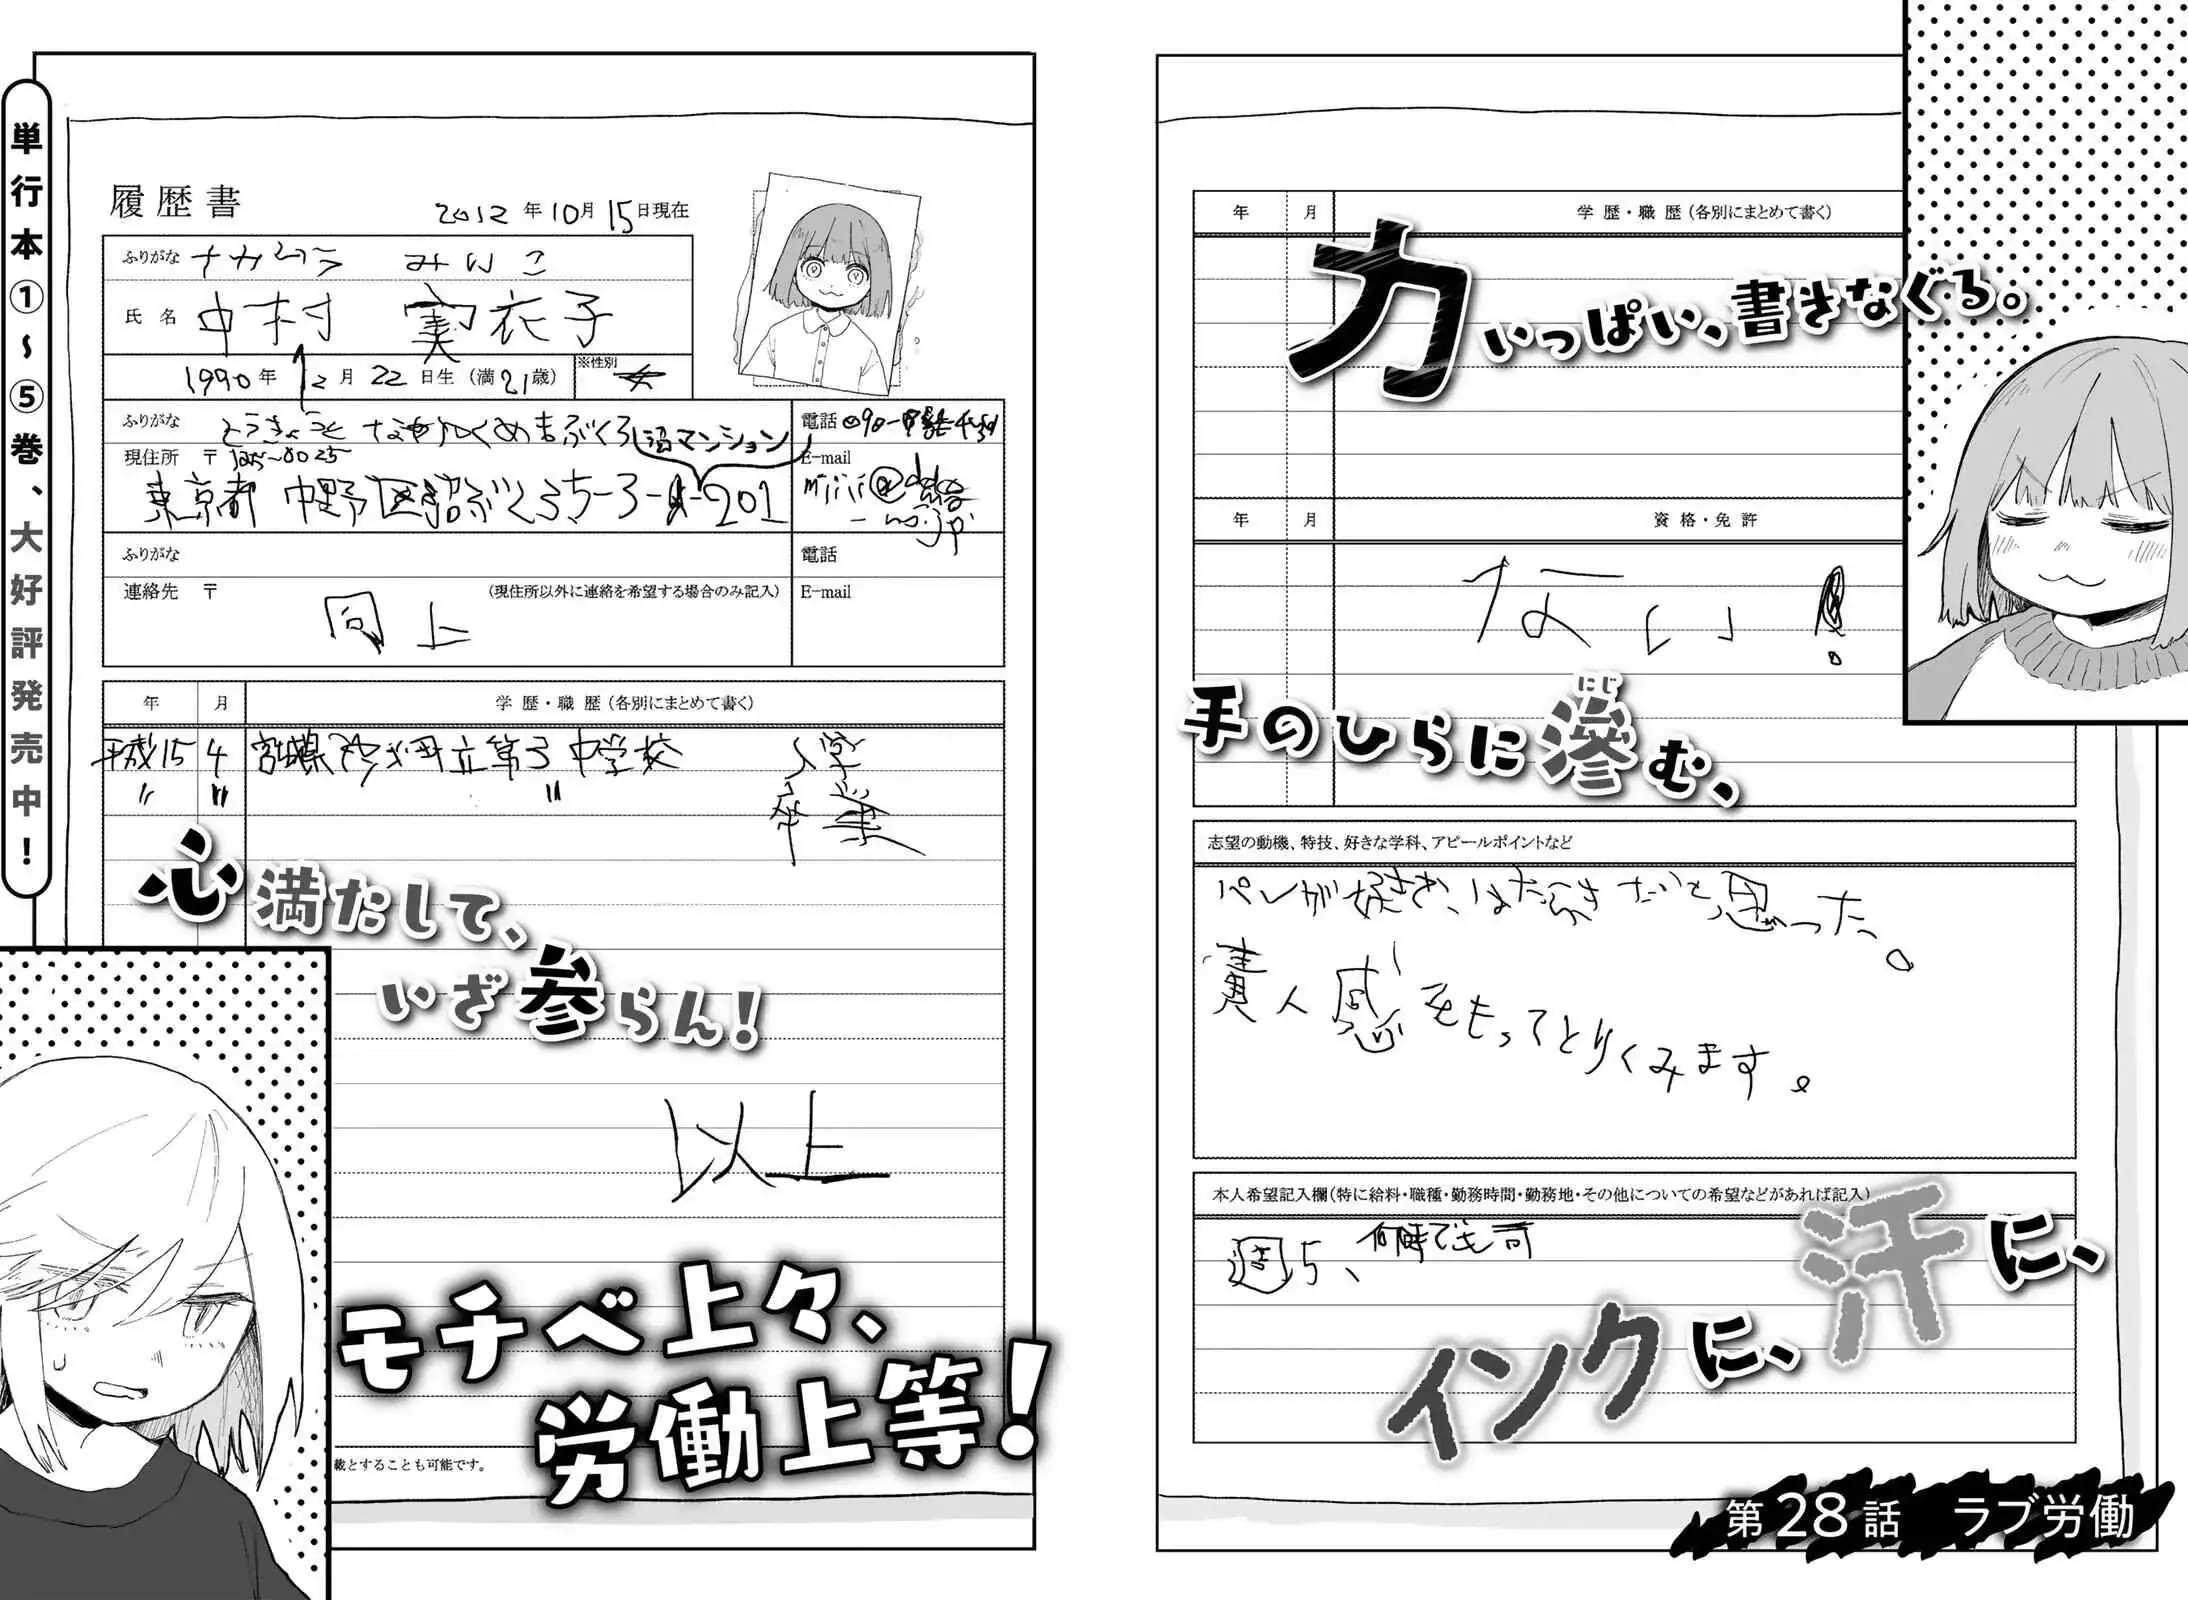 年 月 学歴・職歴（各別にまとめて書く）
力いっぱい、書きなぐる。
年 月 資格・免許
ない！
手のひらに滲む、
にじ
志望の動機、特技、好きな学科、アピールポイントなど
パンが好き、はたらきたいと思った。
責人感をもってとりくみます。
本人希望記入欄（特に給料・職種・勤務時間・勤務地・その他についての希望などがあれば記入）
週5、何時でも可
汗に、
インクに、
第28話 ラブ労働
履歴書
2012年10月15日現在
ふりがな ナカムラ みいこ
氏名 中村 実衣子
1990年12月22日生（満21歳） ※性別 女
ふりがな とうきょうと なかのく ぬまぶくろ
沼マンション
電話 090-
現住所 〒
E-mail
東京都 中野区沼ぶくろ5-3-201
ふりがな
電話
連絡先 〒 （現住所以外に連絡を希望する場合のみ記入） E-mail
同上
年 月 学歴・職歴（各別にまとめて書く）
平成15 4 宮城県 町立第3中学校 入学
〃 〃 〃 卒業
心満たして、
いざ参らん！
以上
モチベ上々、
労働上等！
載とすることも可能です。
単行本①〜⑤巻、大好評発売中！